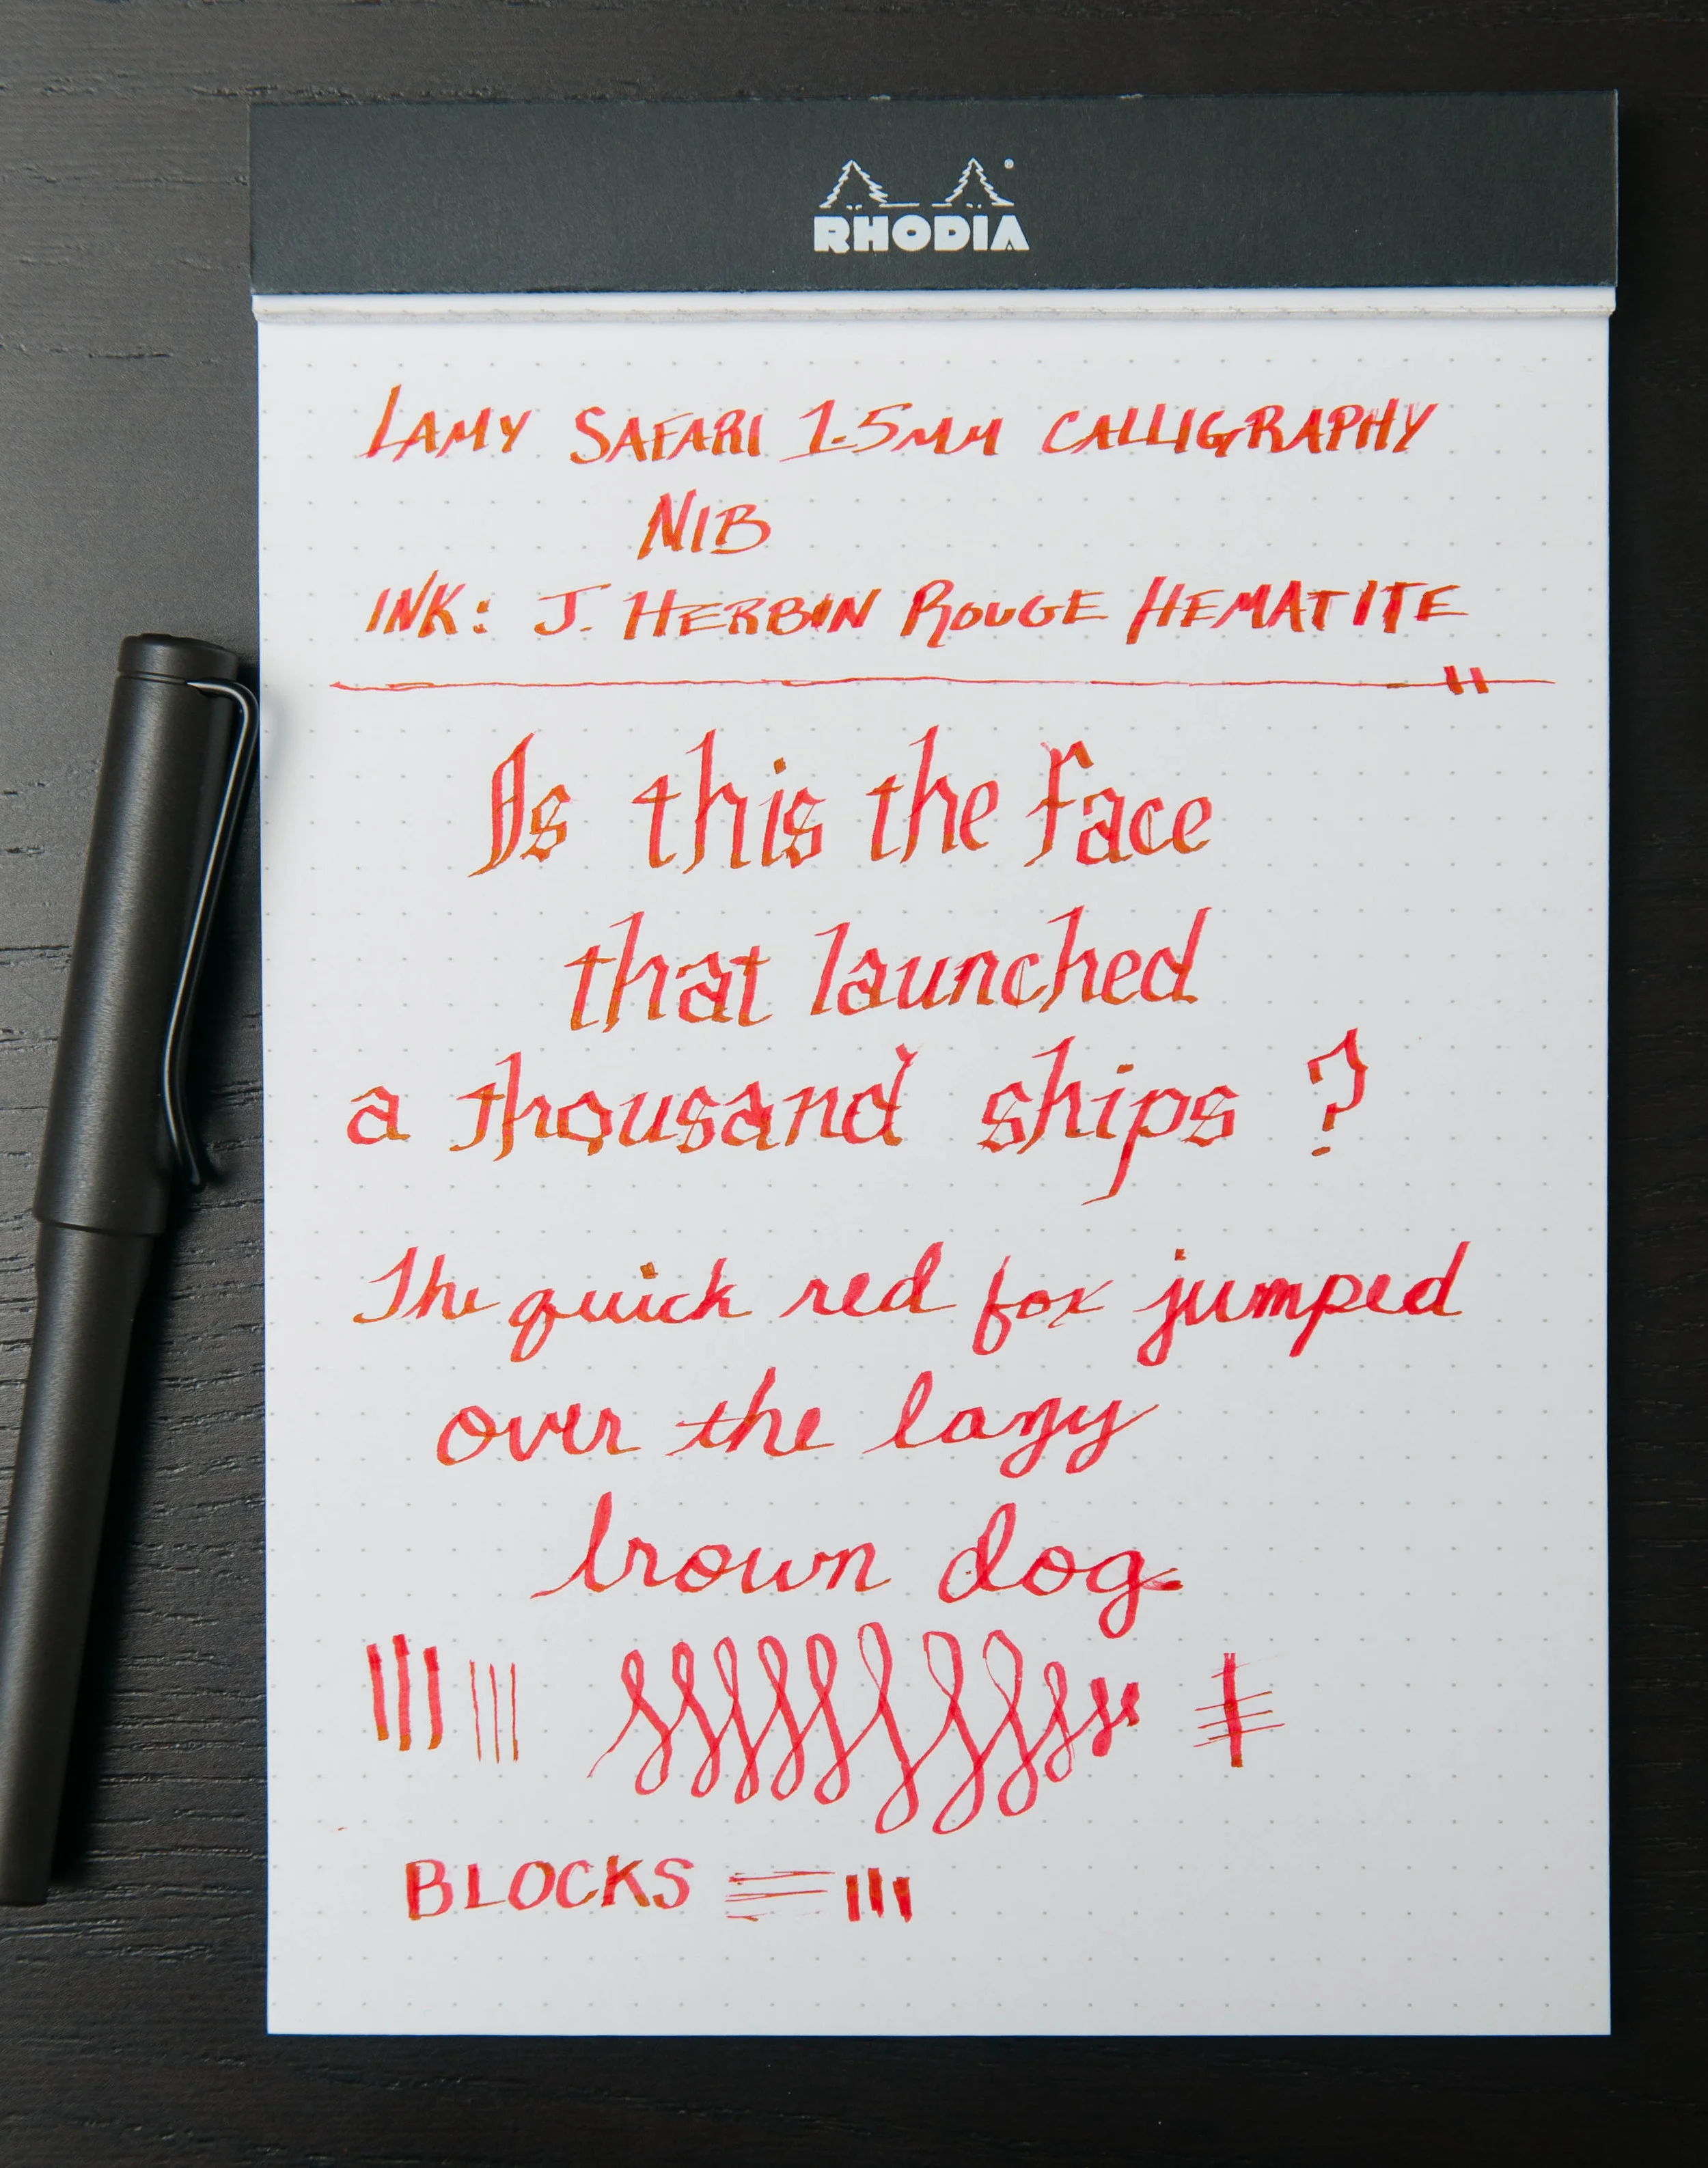 RHODIA
LAMY SAFARI 1.5MM CALLIGRAPHY
NIB
INK: J. HERBIN ROUGE HEMATITE
Is this the face
that launched
a thousand ships ?
The quick red fox jumped
over the lazy
brown dog
BLOCKS